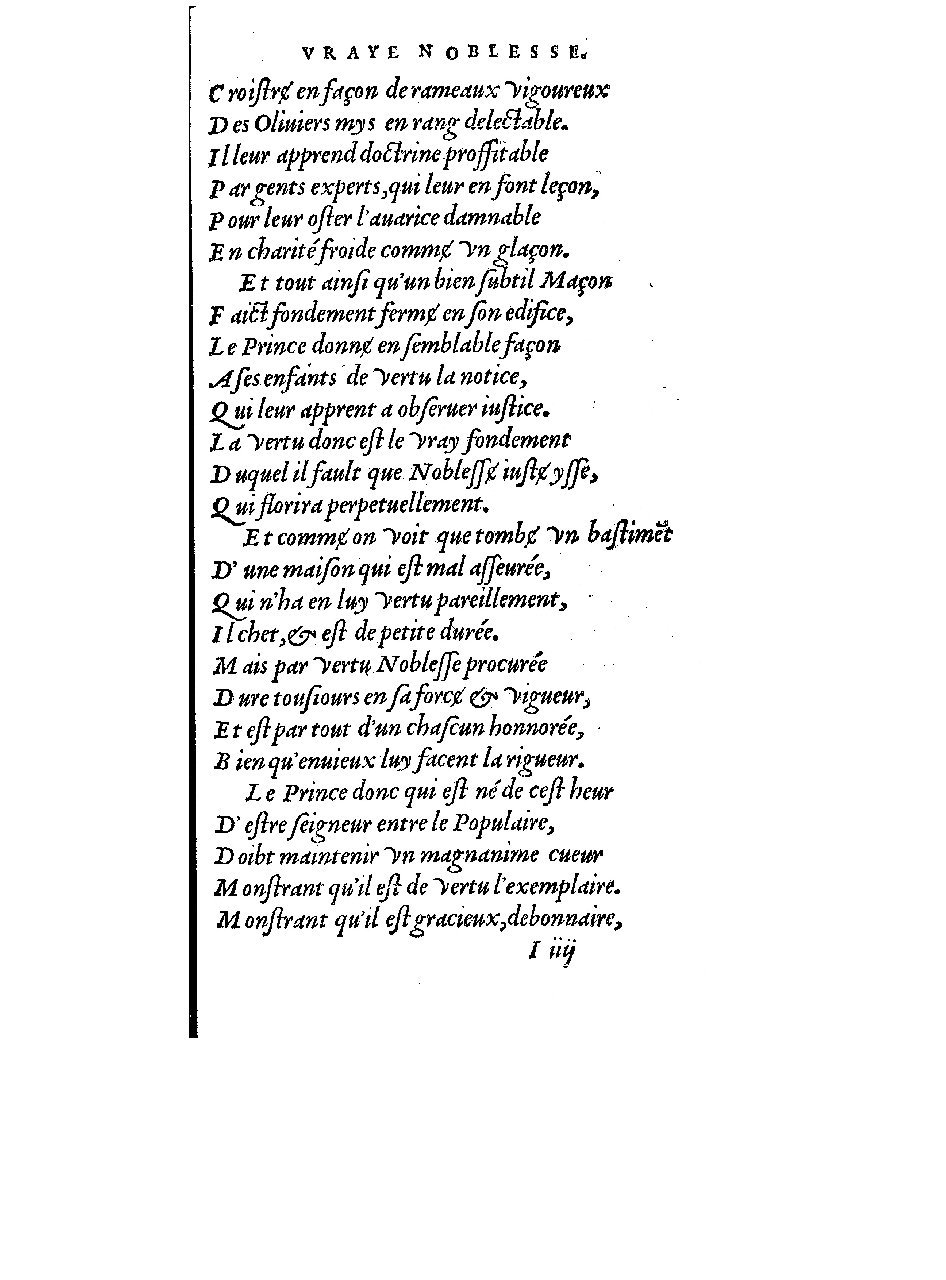 VRAYE NOBLESSE.
Croiſtrɇ en façon de rameaux vigoureux
Des Oliuiers mys en rang delectable.
Il leur apprend doctrine proffitable
Par gents experts, qui leur en font leçon,
Pour leur oſter l'auarice damnable
En charité froide commɇ vn glaçon.
Et tout ainſi qu'un bien ſubtil Maçon
Faict fondement fermɇ en ſon edifice,
Le Prince donnɇ en ſemblable façon
A ſes enfants de vertu la notice,
Qui leur apprent a obſeruer iuſtice.
La vertu donc eſt le vray fondement
Duquel il fault que Nobleſſɇ iuſtɇ yſſe,
Qui florira perpetuellement.
Et commɇ on voit que tombɇ vn baſtimēt
D'une maiſon qui eſt mal aſſeurée,
Qui n'ha en luy vertu pareillement,
Il chet, & eſt de petite durée.
Mais par vertu Nobleſſe procurée
Dure touſiours en ſa forcɇ & vigueur,
Et eſt par tout d'un chaſcun honnorée,
Bien qu'enuieux luy facent la rigueur.
Le Prince donc qui eſt né de ceſt heur
D'eſtre ſeigneur entre le Populaire,
Doibt maintenir vn magnanime cueur
Monſtrant qu'il eſt de vertu l'exemplaire.
Monſtrant qu'il eſt gracieux, debonnaire,
I iiij